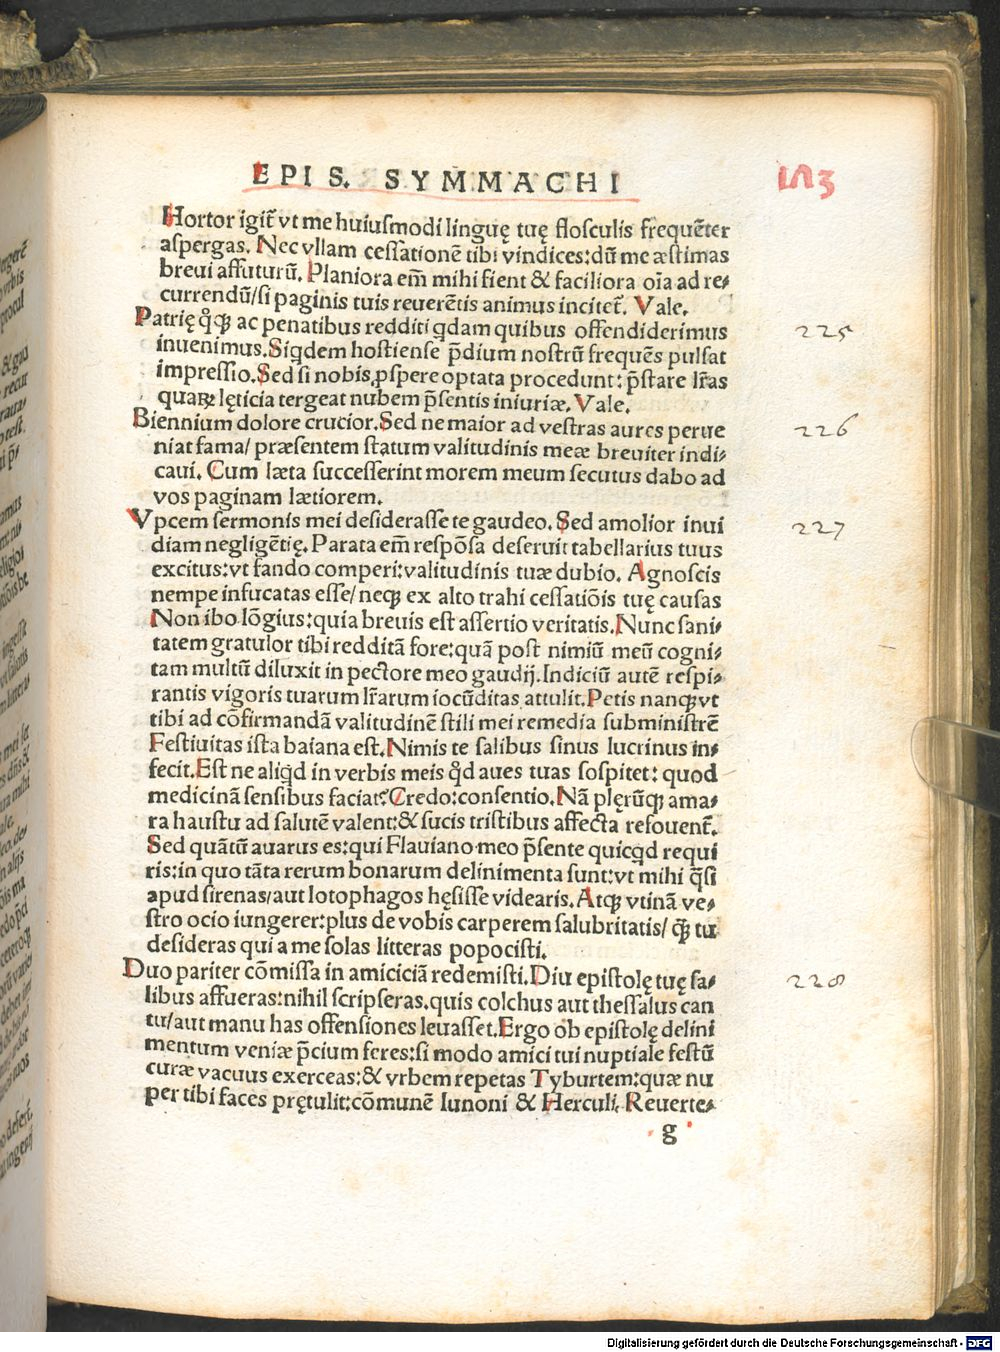 EPIS. SYMMACHI
Hortor igit̃ vt me huiusmodi linguę tuę flosculis frequẽter
aspergas. Nec vllam cessationẽ tibi vindices: dũ me æstimas
breui affuturũ. Planiora em̃ mihi fient & faciliora oĩa ad re-
currendũ/si paginis tuis reuerẽtis animus incitet̃. Vale.
Patrię qͦqꝫ ac penatibus redditi qdam quibus offendiderimus
225
inuenimus. Siqdem hostiense p̃dium nostrũ frequẽs pulsat
impressio. Sed si nobis ꝓspere optata procedunt: p̃stare lr̃as
quaꝝ lęticia tergeat nubem p̃sentis iniuriæ. Vale.
Biennium dolore crucior. Sed ne maior ad vestras aures perue
226
niat fama/ præsentem statum valitudinis meæ breuiter indi-
caui. Cum læta successerint morem meum secutus dabo ad
vos paginam lætiorem.
Vpcem sermonis mei desiderasse te gaudeo. Sed amolior inui
227
diam negligẽtię. Parata em̃ respõsa deseruit tabellarius tuus
excitus: vt fando comperi: valitudinis tuæ dubio. Agnoscis
nempe infucatas esse/ neqꝫ ex alto trahi cessatiõis tuę causas
Non ibo lõgius: quia breuis est assertio veritatis. Nunc sani-
tatem gratulor tibi redditã fore: quã post nimiũ meũ cogni-
tam multũ diluxit in pectore meo gaudij. Indiciũ autẽ respi-
rantis vigoris tuarum lr̃arum iocũditas attulit. Petis nanqꝫ vt
tibi ad cõfirmandã valitudinẽ stili mei remedia subministrẽ
Festiuitas ista baiana est. Nimis te salibus sinus lucrinus in-
fecit. Est ne aliqd in verbis meis qͦd aues tuas sospitet: quod
medicinã sensibus faciat? Credo: consentio. Nã plęrũqꝫ ama-
ra haustu ad salutẽ valent: & sucis tristibus affecta refouent̃.
Sed quãtũ auarus es: qui Flauiano meo p̃sente quicqd requi
ris: in quo tãta rerum bonarum delinimenta sunt: vt mihi q̃si
apud sirenas/ aut lotophagos hęsisse videaris. Atqꝫ vtinã ve-
stro ocio iungerer: plus de vobis carperem salubritatis/ q̃ꝫ tu
desideras qui a me solas litteras popocisti.
Duo pariter cõmissa in amiciciã redemisti. Diu epistolę tuę sa-
228
libus affueras: nihil scripseras. quis colchus aut thessalus can
tu/ aut manu has offensiones leuasset. Ergo ob epistolę delini
mentum veniæ p̃cium feres: si modo amici tui nuptiale festũ
curæ vacuus exerceas: & vrbem repetas Tyburtem: quæ nu
per tibi faces prętulit: cõmunẽ Iunoni & Herculi. Reuerte-
g
Digitalisierung gefördert durch die Deutsche Forschungsgemeinschaft - DFG